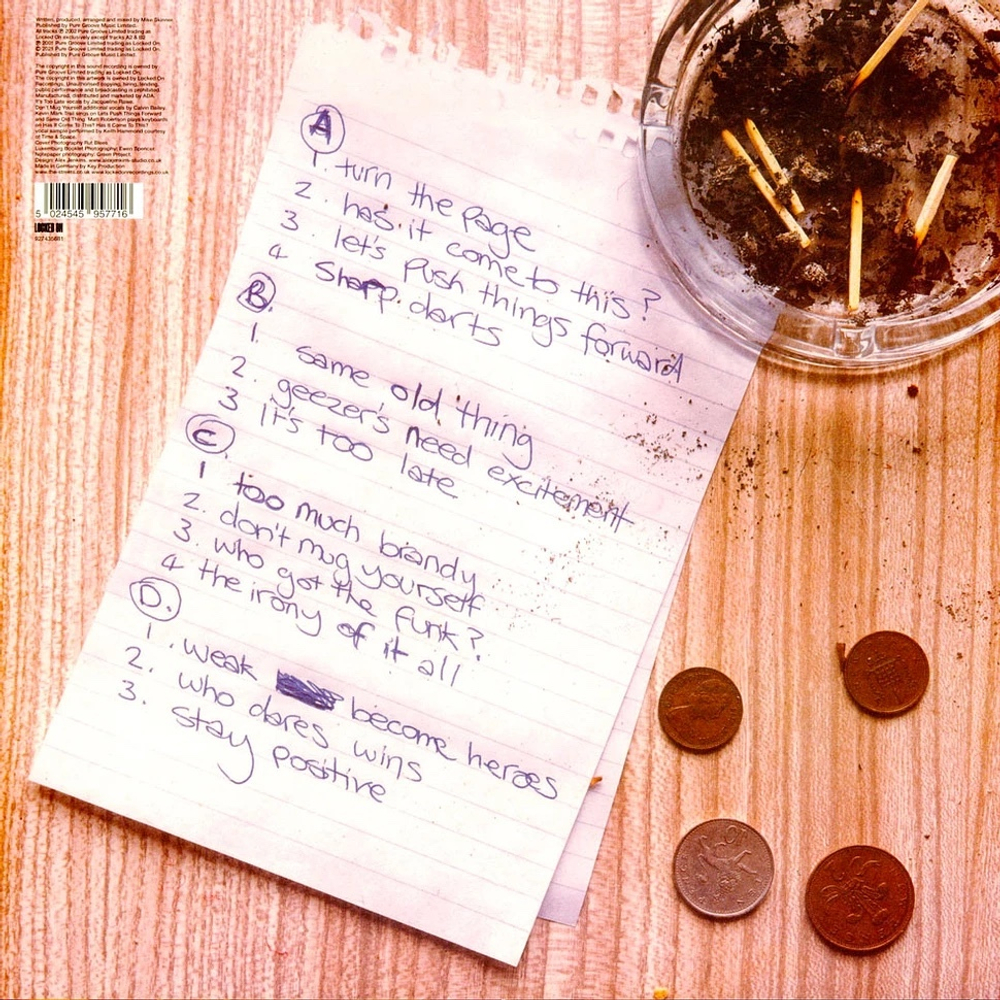 Written, produced, arranged and mixed by Mike Skinner.
Published by Pure Groove Music Limited.
All tracks ℗ 2002 Pure Groove Limited trading as
Locked On exclusively except tracks A2 & B2
℗ 2001 Pure Groove Limited trading as Locked On.
© 2021 Pure Groove Limited trading as Locked On.
Published by Pure Groove Music Limited.
The copyright in this sound recording is owned by
Pure Groove Limited trading as Locked On.
The copyright in this artwork is owned by Locked On
Recordings. Unauthorised copying, hiring, lending,
public performance and broadcasting is prohibited.
Manufactured, distributed and marketed by ADA.
It's Too Late vocals by Jacqueline Rawe.
Don't Mug Yourself additional vocals by Calvin Bailey.
Kevin Mark Trail sings on Lets Push Things Forward
and Same Old Thing. Matt Robertson plays keyboards
on Has It Come To This? Has It Come To This?
vocal sample performed by Keith Hammond courtesy
of Time & Space.
Cover Photography Rut Blees
Luxemburg Booklet Photography: Ewen Spencer
Notepaper photography:
Design: Alex Jenkins.
Made in Germany by Key Production
www.the-streets.co.uk www.lockedonrecordings.co.uk
5 024545 957716
LOCKED ON
A
1. turn the page
2. has it come to this?
3. let's push things forward
4 sharp darts
B.
1. same old thing
2. geezer's need excitement
3 It's too late
C.
1 too much brandy
2. don't mug yourself
3. who got the funk?
4 the irony of it all
D.
1. weak become heroes
2. who dares wins
3. stay positive
10